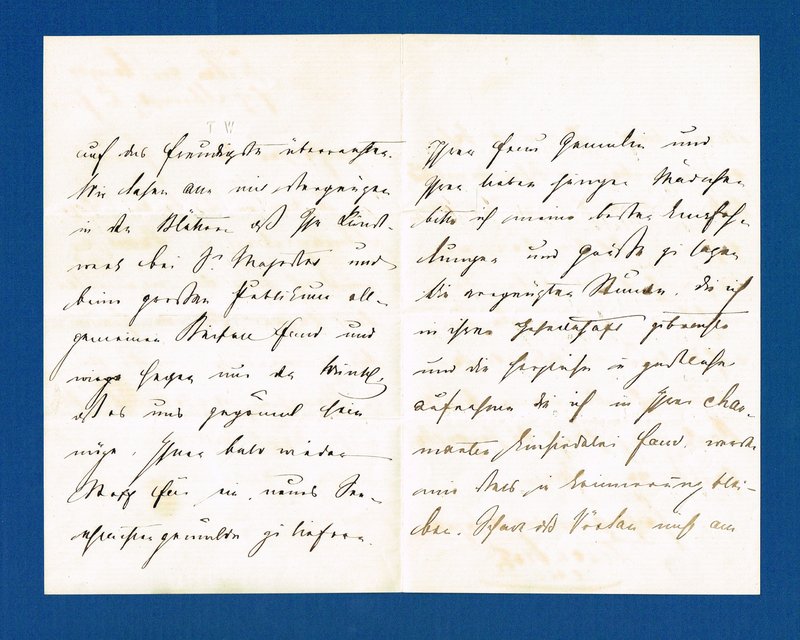 auf das freundlichste überraschten.
Wir lasen alle mit Vergnügen
in den Blättern daß Ihr Kunst-
werk bei Sr. Majestät und
beim großen Publikum all-
gemeinen Beifall fand und
hegen nur den Wunsch,
daß es uns gegönnt sein
möge, Ihnen bald wieder
Stoff für ein neues See-
schlachtengemälde zu liefern.
Ihrer Frau Gemalin und
Ihren lieben jungen Mädchen
bitte ich meine besten Empfeh-
lungen und Grüße zu sagen
Die vergnügten Stunden, die ich
in ihrer Gesellschaft zubrachte
und die herzliche u gastliche
Aufnahme die ich in Ihrer char-
manten Einsiedelei fand, werde
mir stets in Erinnerung blei-
ben. Schade daß nicht am